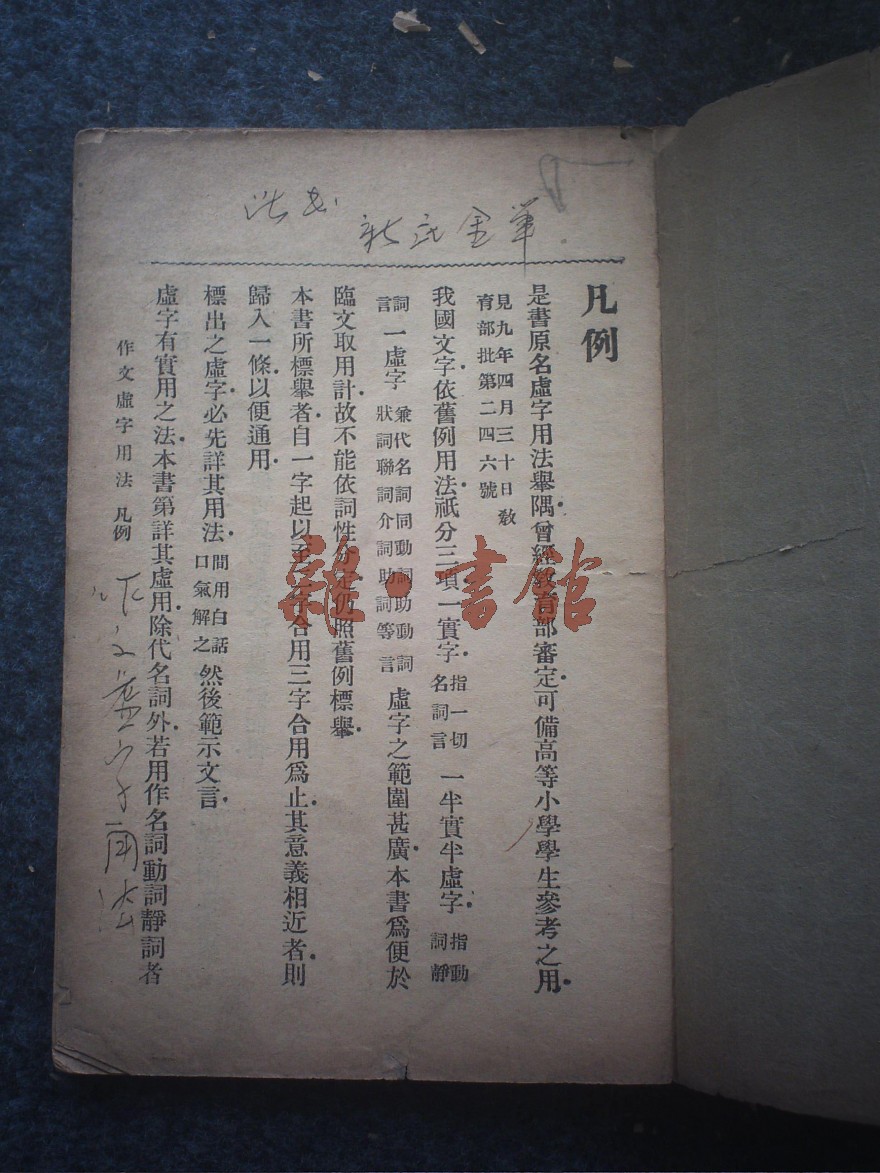 凡例
是書原名虛字用法舉隅．曾經教育部審定．可備高等小學學生參考之用．
見九年四月三十日教
育部批第二四六號
我國文字．依舊例用法．祇分三項．一實字．指一切名詞言 一半實半虛字．指動詞靜
詞言 一虛字 兼代名詞同動詞助動詞狀詞聯詞介詞助詞等言 虛字之範圍甚廣．本書爲便於
臨文取用計．故不能依詞性分定．仍照舊例標舉．
本書所標舉者．自一字起以至二字合用三字合用爲止．其意義相近者．則
歸入一條．以便通用．
標出之虛字．必先詳其用法．間用白話口氣解之 然後範示文言．
虛字有實用之法．本書第詳其虛用．除代名詞外．若用作名詞動詞靜詞者
作文虛字用法 凡例
雜·書館